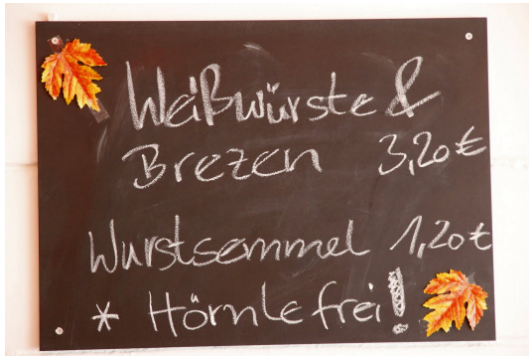 Weißwürste &
Brezen 3,20 €
Wurstsemmel 1,20 €
* Hörnle frei!